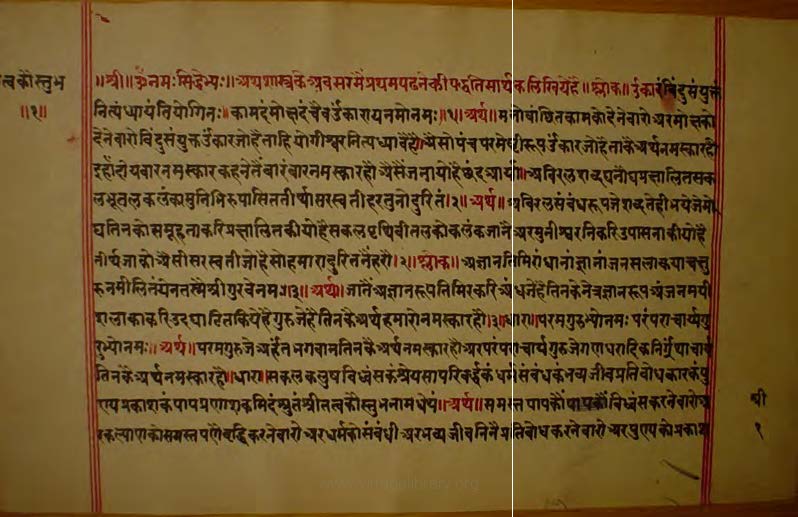 त्वकौस्तुभ
॥१॥
॥श्री॥ ॐ नमः सिद्धेभ्यः॥ अथ शास्त्रके अवसरमैं प्रथम पढनेकी पद्धति सार्थक लिखियेहै॥ श्लोक॥ उंकारं बिंदुसंयुक्तं
नित्यं ध्यायंति योगिनः॥ कामदं मोक्षदं चैव उंकाराय नमोनमः॥१॥ अर्थ॥ मनोवांछित कामको देनेवारो अर मोक्षको
देनेवारो बिंदुसंयुक्त उंकार जोहै ताहि योगीश्वर नित्य ध्यावेहै॥ ऐसो पंच परमेष्ठीरूप उंकार जोहै ताकै अर्थ नमस्कारहौ
इहां दोयवार नमस्कार कहनेतैं वारंवार नमस्कारहौ ऐसें जनायोहै छंद आर्या॥ अविरलशब्दघनौघप्रक्षालितसक
लभूतलकलंका मुनिभिरुपासिततीर्था सरस्वती हरतु नो दुरितं॥२॥ अर्थ॥ अविरल संबंधरूप जे शब्द तेही भये जे मे
घ तिनको समूह ताकरि प्रक्षालित कीयोहै सकल पृथिवीतलको कलंक जानै अर मुनीश्वरनिकरि उपासना कीयोहै
तीर्थ जाको ऐसी सरस्वती जोहै सो हमारा दुरितनैं हरो॥२॥ श्लोक॥ अज्ञानतिमिरांधानां ज्ञानांजनसलाकया चक्षु
रुन्मीलितं येन तस्मै श्रीगुरवे नमः॥३॥ अर्थ॥ जानै अज्ञानरूप तिमिरकरि अंध जेहै तिनके नेत्र ज्ञानरूप अंजनमयी
शलाकाकरि उदघाटित कियेहै गुरु जेहै तिनके अर्थ हमारो नमस्कारहौ॥३॥ धारा॥ परमगुरुभ्योनमः परंपराचार्यगु
रुभ्योनमः॥ अर्थ॥ परमगुरु जे अर्हंत भगवान तिनकै अर्थ नमस्कारहौ अर परंपराचार्य गुरु जे गणधरादिक निर्ग्रंथाचार्य
तिनकै अर्थ नमस्कारहौ॥ धारा॥ सकलकलुषविध्वंसकं श्रेयसापरिवर्द्धकं धर्मसंबंधकं भव्यजीवप्रतिबोधकारकं पु
ण्यप्रकाशकं पापप्रणाशकमिदं श्रुतं श्रीतत्वकौस्तुभनामधेयं॥ अर्थ॥ समस्त पापकौ विध्वंस करनेवारो
र कल्याणको समस्तपणै वृद्धि करनेवारो अर धर्मको संबंधी अर भव्यजीवनिनै प्रतिबोध करनेवारो अर पुण्यको प्रकाश
श्री
१
www.vitragalibrary.org